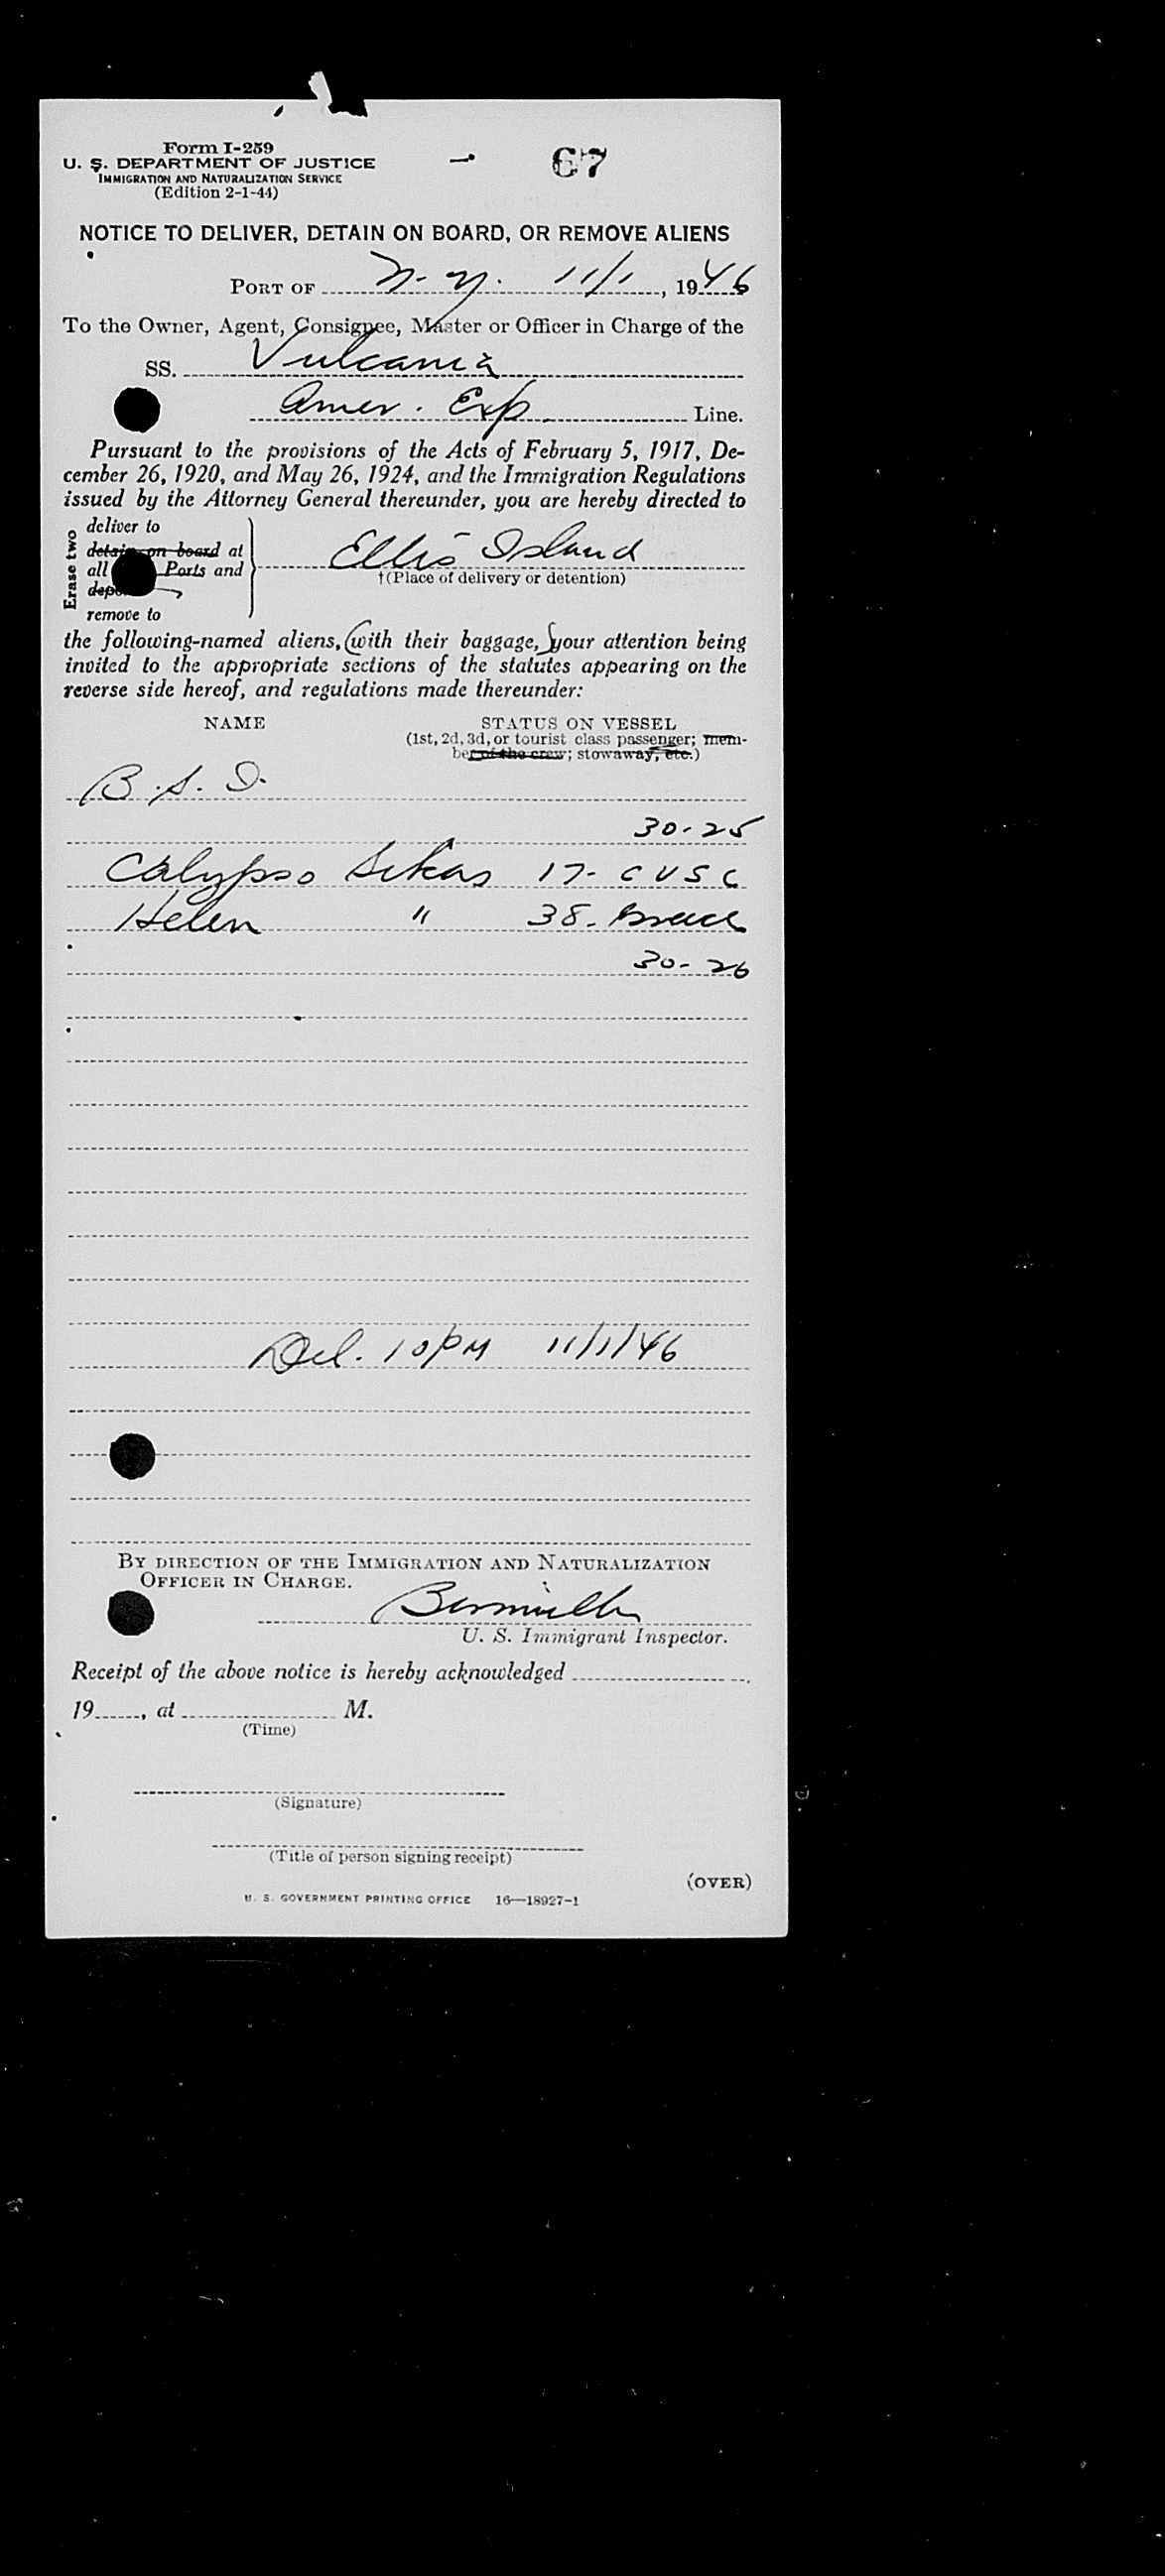 Form I-259
U. S. DEPARTMENT OF JUSTICE
IMMIGRATION AND NATURALIZATION SERVICE
(Edition 2-1-44)
67
NOTICE TO DELIVER, DETAIN ON BOARD, OR REMOVE ALIENS
PORT OF N. Y. 11/1, 1946
To the Owner, Agent, Consignee, Master or Officer in Charge of the
SS. Vulcania
Amer. Exp. Line.
Pursuant to the provisions of the Acts of February 5, 1917, De-
cember 26, 1920, and May 26, 1924, and the Immigration Regulations
issued by the Attorney General thereunder, you are hereby directed to
Erase two
deliver to
detain on board at
all Ports and
remove to
Ellis Island
†(Place of delivery or detention)
the following-named aliens, (with their baggage,) your attention being
invited to the appropriate sections of the statutes appearing on the
reverse side hereof, and regulations made thereunder:
NAME STATUS ON VESSEL
(1st, 2d, 3d, or tourist class passenger; mem-
ber of the crew; stowaway, etc.)
B. S. I.
30-25
Calypso Sikas 17- C U S C
Helen " 38-
30-26
Del. 10 PM 11/1/46
BY DIRECTION OF THE IMMIGRATION AND NATURALIZATION
OFFICER IN CHARGE.
U. S. Immigrant Inspector.
Receipt of the above notice is hereby acknowledged
19, at M.
(Time)
(Signature)
(Title of person signing receipt)
(OVER)
U. S. GOVERNMENT PRINTING OFFICE 16—18927-1